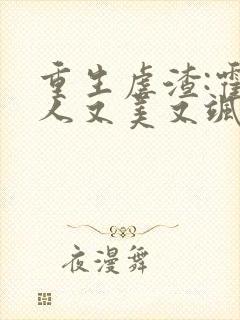 重生虐渣:霍
人又美又飒
夜漫舞